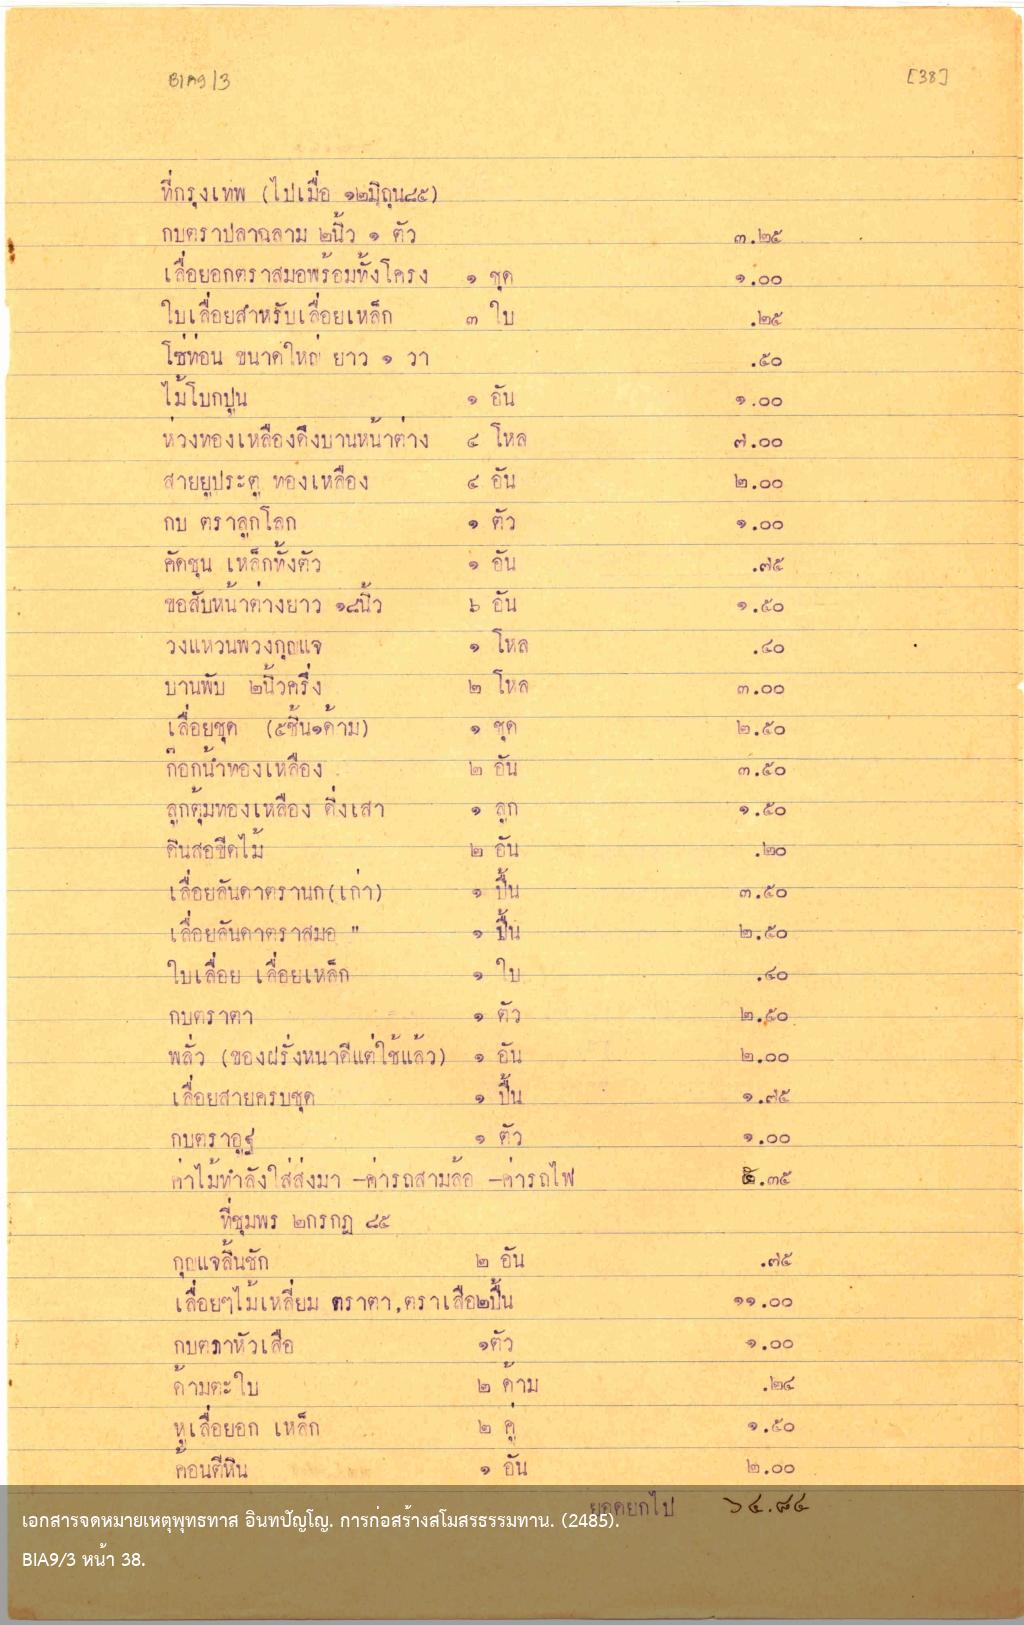 BIA9/3 [38]
ที่กรุงเทพ (ไปเมื่อ ๑๒มิถุน๘๕)
กบตราปลาฉลาม ๒นิ้ว ๑ ตัว ๓.๒๕
เลื่อยอกตราสมอพร้อมทั้งโครง ๑ ชุด ๑.๐๐
ใบเลื่อยสำหรับเลื่อยเหล็ก ๓ ใบ .๒๕
โซ่ท่อน ขนาดใหญ่ ยาว ๑ วา .๕๐
ไม้โบกปูน ๑ อัน ๑.๐๐
ห่วงทองเหลืองดึงบานหน้าต่าง ๔ โหล ๗.๐๐
สายยูประตู ทองเหลือง ๔ อัน ๒.๐๐
กบ ตราลูกโลก ๑ ตัว ๑.๐๐
คัดชุน เหล็กทั้งตัว ๑ อัน .๗๕
ขอสับหน้าต่างยาว ๑๘นิ้ว ๖ อัน ๑.๕๐
วงแหวนพวงกุญแจ ๑ โหล .๔๐
บานพับ ๒นิ้วครึ่ง ๒ โหล ๓.๐๐
เลื่อยชุด (๕ชิ้น๑ด้าม) ๑ ชุด ๒.๕๐
ก๊อกน้ำทองเหลือง ๒ อัน ๓.๕๐
ลูกตุ้มทองเหลือง ดิ่งเสา ๑ ลูก ๑.๕๐
ดินสอขีดไม้ ๒ อัน .๒๐
เลื่อยลันดาตรานก(เก่า) ๑ ปื้น ๓.๕๐
เลื่อยลันดาตราสมอ " ๑ ปื้น ๒.๕๐
ใบเลื่อย เลื่อยเหล็ก ๑ ใบ .๔๐
กบตราตา ๑ ตัว ๒.๕๐
พลั่ว (ของฝรั่งหนาดีแต่ใช้แล้ว) ๑ อัน ๒.๐๐
เลื่อยสายครบชุด ๑ ปื้น ๑.๗๕
กบตราอูฐ ๑ ตัว ๑.๐๐
ค่าไม้ทำลังใส่ส่งมา -ค่ารถสามล้อ -ค่ารถไฟ .๓๕
ที่ชุมพร ๒กรกฎ ๘๕
กุญแจลิ้นชัก ๒ อัน .๗๕
เลื่อยๆไม้เหลี่ยม ตราตา,ตราเสือ๒ปื้น ๑๑.๐๐
กบตราหัวเสือ ๑ตัว ๑.๐๐
ด้ามตะใบ ๒ ด้าม .๒๔
หูเลื่อยอก เหล็ก ๒ คู่ ๑.๕๐
ค้อนตีหิน ๑ อัน ๒.๐๐
ยอดยกไป ๖๔.๘๔
เอกสารจดหมายเหตุพุทธทาส อินทปัญโญ. การก่อสร้างสโมสรธรรมทาน. (2485).
BIA9/3 หน้า 38.